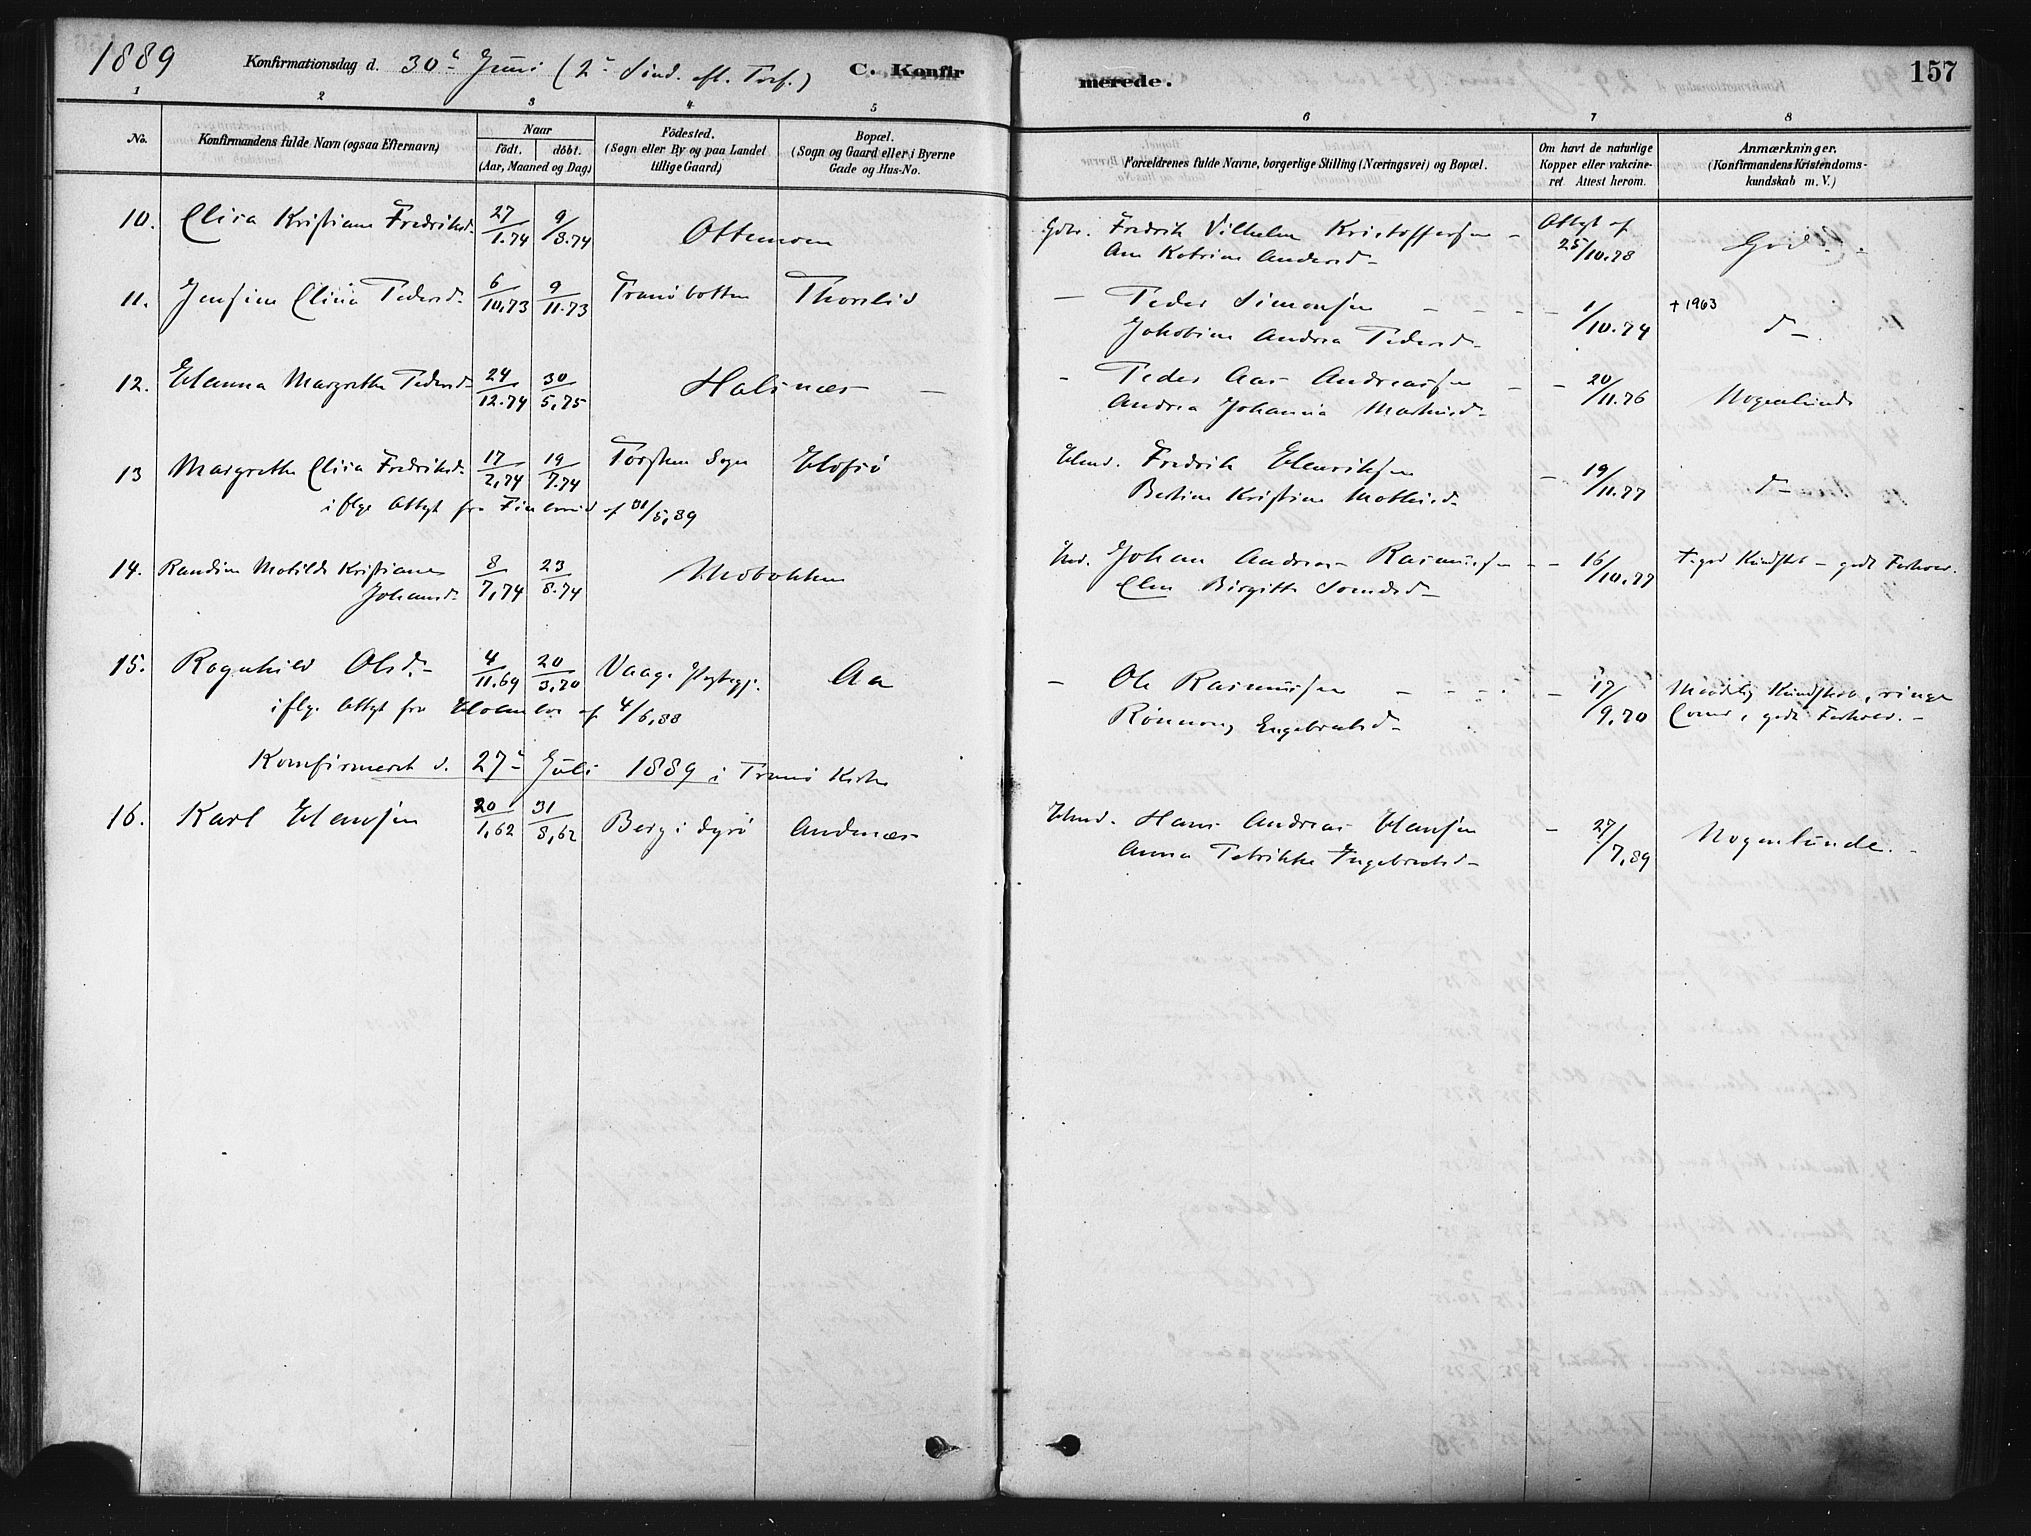 1889 Konfirmationsdag d. 30te Juni (2den Sönd. eft. Tref.) C. Konfirmerede. 157
1 2 3 4 5 6 7 8
No. Konfirmandens fulde Navn (ogsaa Efternavn) Naar födt. döbt. (Aar, Maaned og Dag) Födested. (Sogn eller By og paa Landet tillige Gaard) Bopæl. (Sogn og Gaard eller i Byerne Gade og Hus-No. Forældrenes fulde Navne, borgerlige Stilling (Næringsvei) og Bopæl. Om havt de naturlige Kopper eller vakcineret Attest herom. Anmærkninger. (Konfirmandens Kristendomskundskab m. V.)
10. Elisa Kristiane Fredriksd. 27/1.74 9/3.74 Fredrik Vilhelm Kristoffersen Attest af 25/10.78 God
Ane Katrine Andersd.
11. Jensine Elisa Pedersd. 6/10.73 9/11.73 Tranöbotten Peder Simonsen 1/10.74 +1963 d
Jakobine Andrea Pedersd.
12. Hanna Margrethe Pedersd. 24/12.74 30/5.75 Halsnæs Peder Aas Andreassen 20/11.76 Nogenlunde
Andrea Johanna Mathisd.
13 Margrethe Elisa Fredriksd. 17/2.74 19/7.74 Torsken Sogn Hofsö Hmd. Fredrik Henriksen 19/11.77 d
iflge Attest fra af 31/5.89 Kristine Mathisd.
14. Randine Matilde Kristiane 8/7.74 23/8.74 Johan Andreas Rasmussen 16/10.77
Johansd. Elen Birgitte
15. Ragnhild Olsd. 4/11.69 20/3.70 Vaage Præstegj. Aa Ole Rasmussen 17/9.70 Maadelig Kundskab, ringe
iflge Attest fra af 4/6.88 Engebretsd. gode Forhold.
Konfirmeret d. 27de Juli 1889 i Tranö Kirke
16. Karl Hansen 20/1.62 31/8.62 Berg i Dyrö Andnæs Hmd. Hans Andreas Hansen 27/7.89 Nogenlunde.
Anna Petrikke Ingebretsd.